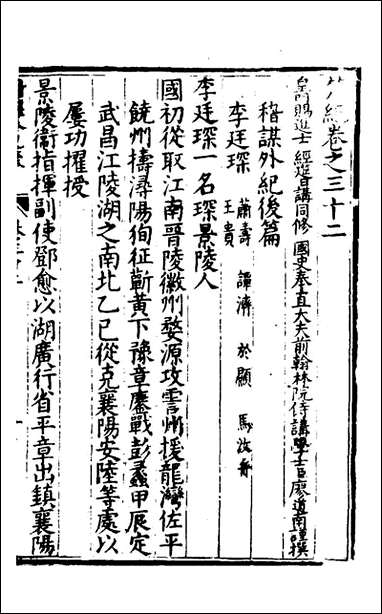 紀卷之三十二
皇明賜進士經筵日講同修國史奉直大夫前翰林院侍講學士臣廖道南謹撰
稽謀外紀後篇
李廷琛
蕭壽 譚濟 於顯 馬汝舟
王貴
李廷琛一名琛景陵人
國初從取江南晉陵徽州婺源攻雲州援龍灣佐平
饒州擣潯陽徇征蘄黃下豫章鏖戰彭蠡甲辰定
武昌江陵湖之南北乙巳從克襄陽安陸等處以
屢功擢授
景陵衛指揮副使鄧愈以湖廣行省平章出鎮襄陽